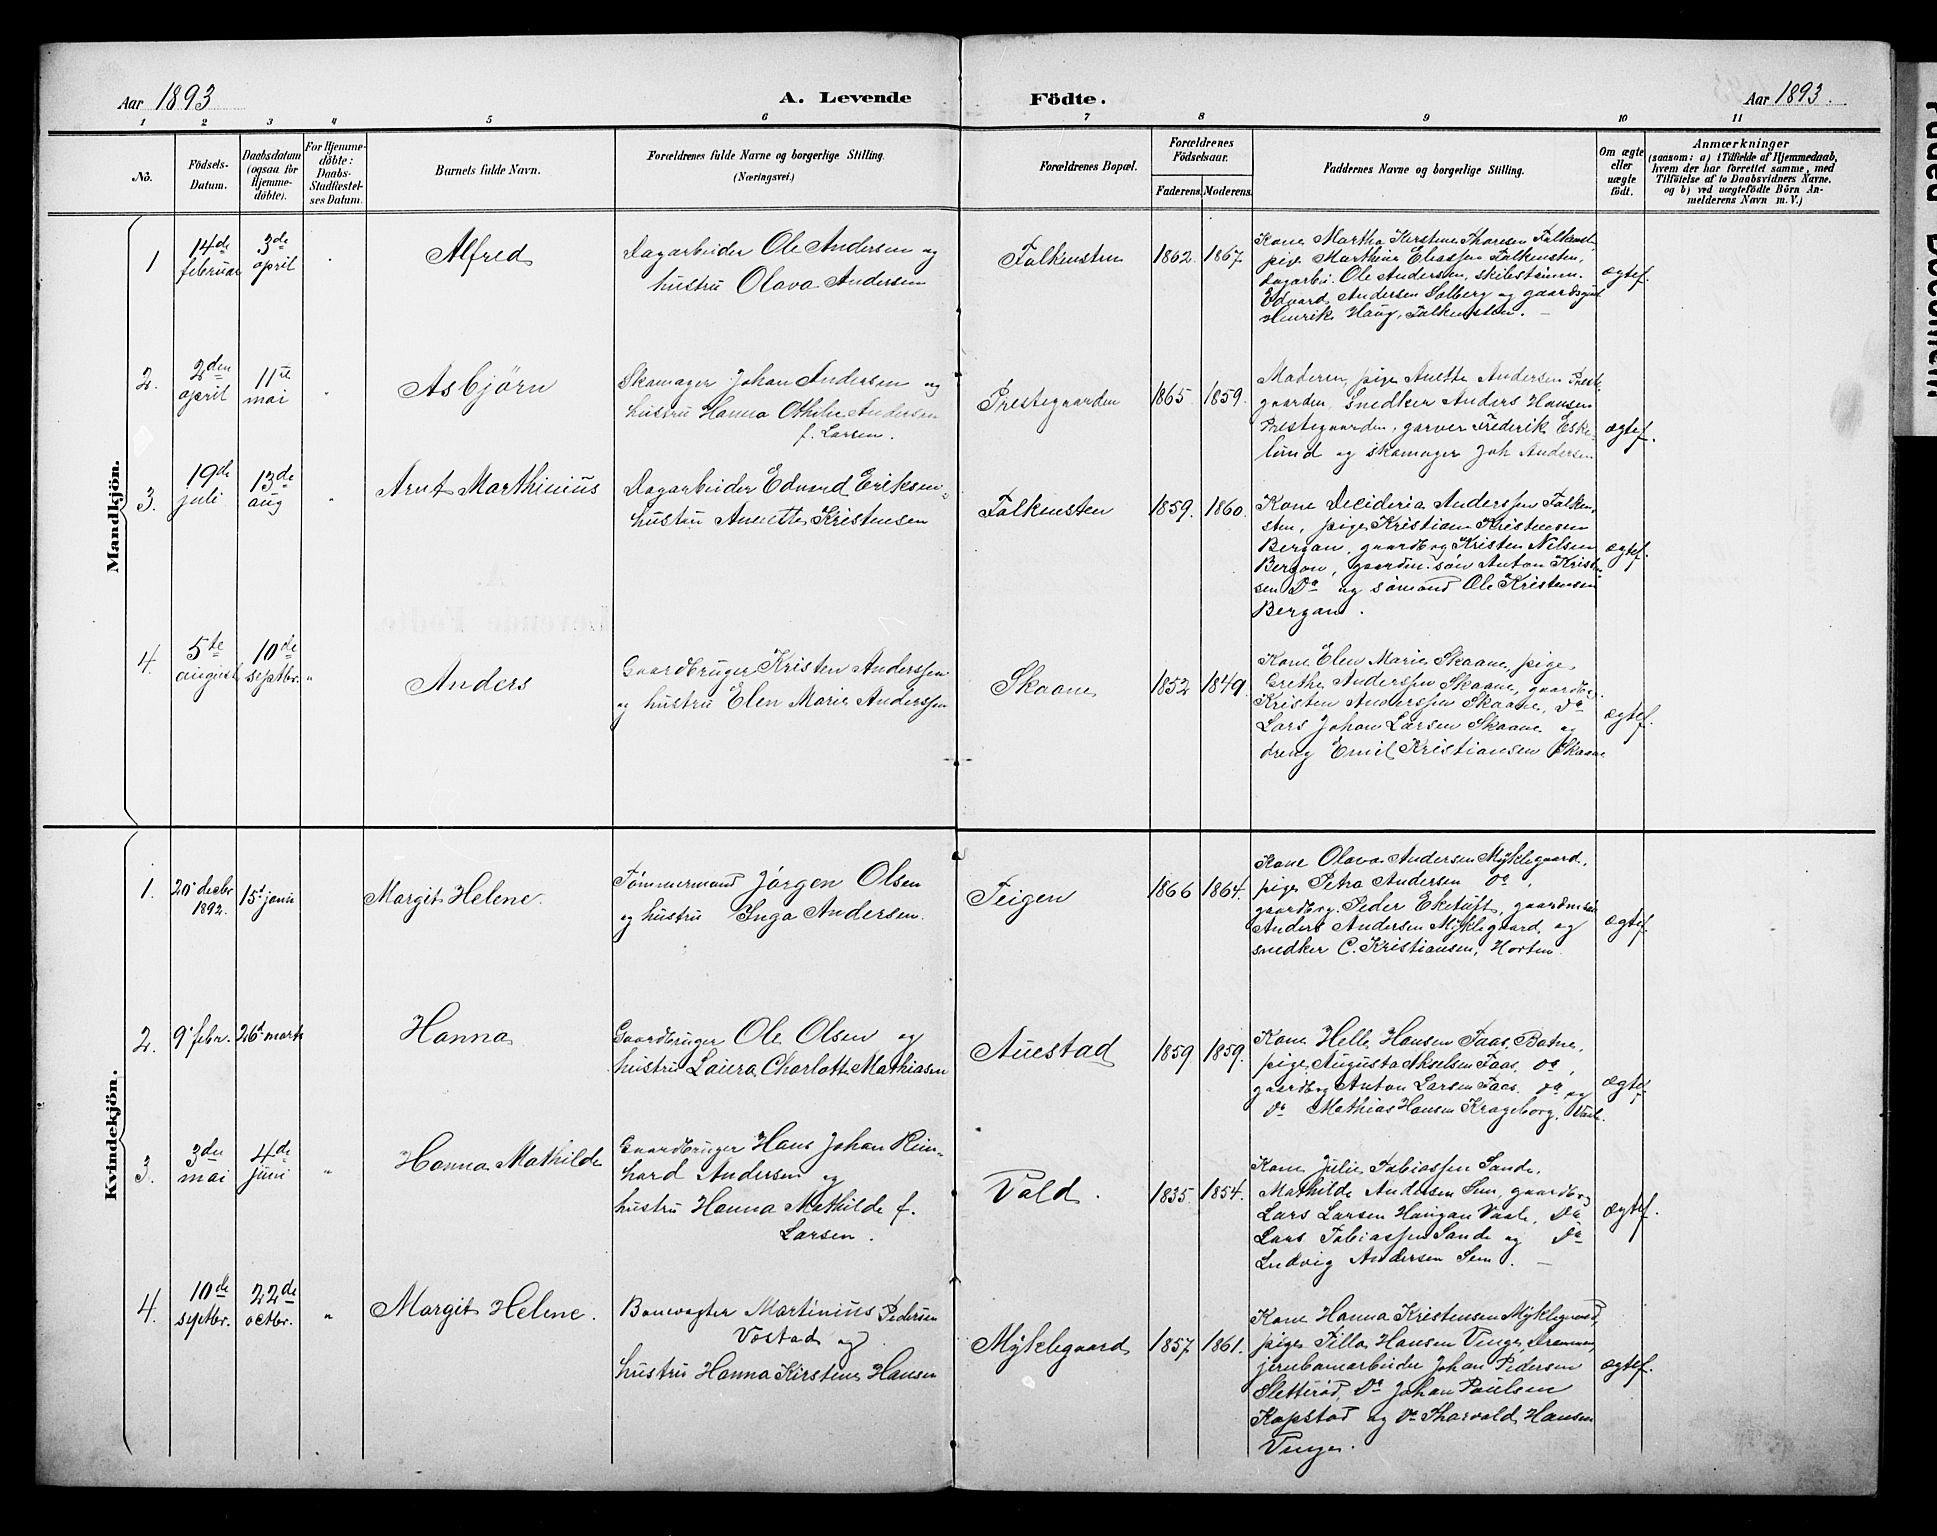 Aar 1893
A. Levende
Födte.
Aar 1893.
1 2 3 4 5 6 7 8 9 10 11
No.
Födsels-
Datum.
Daabsdatum
(ogsaa for
Hjemme-
döbte).
For Hjemme-
döbte:
Daabs-
Stadfæstel-
ses Datum.
Barnets fulde Navn.
Forældrenes fulde Navne og borgerlige Stilling.
(Næringsvei.)
Forældrenes Bopæl.
Forældrenes
Födselsaar.
Faderens. Moderens.
Faddernes Navne og borgerlige Stilling.
Om ægte
eller
uægte
födt.
Anmærkninger
(saasom: a) i Tilfælde af Hjemmedaab,
hvem der har forrettet samme, med
Tilföielse af to Daabsvidners Navne,
og b) ved uægtefödte Börn An-
melderens Navn m. V.)
Mandkjön.
1
14de
februar
3de
april
Alfred
Dagarbeider Ole Andersen og
hustru Olava Andersen
Falkensten
1862. 1867.
Kone Martha Kirstine Thoresen Falkenst.
pige Marthine Eliassen Falkensten,
dagarbei. Ole Andersen, skibstömm.
Edvard Andersen Solberg og gaardsgut
Henrik Haug, Falkensten.
ægtef.
2.
2den
april
11te
mai
Asbjörn
Skomager Johan Andersen og
hustru Hanna Othilie Andersen
f. Larsen.
Prestegaarden
1865. 1859.
Moderen, pige Anette Andersen Preste-
gaarden, snedker Anders Hansen
Prestegaarden, garver Frederik Eske-
lund og skomager Joh Andersen
ægtef.
3.
19de
juli
13de
aug
"
Arnt Marthinius
Dagarbeider Edvard Eriksen,
hustru Annette Kristensen
Falkensten
1859. 1860.
Kone Decideria Anderssen Falken-
sten, pige Kristiane Kristensen
Bergan, gaardbrg Kristen Nilsen
Bergan, gaardm. sön Anton Kristen-
sen Do og sömand Ole Kristensen
Bergan.
ægtef.
4.
5te
august
10de
septbr.
"
Anders
Gaardbruger Kristen Anderssen
og hustru Elen Marie Anderssen
Skaane
1852 1849.
Kone Elen Marie Skaane, pige
Grethe Anderssen Skaane, gaardbr.
Kristen Anderssen Skaane, Do
Lars Johan Larsen Skaane og
dreng Emil Kristiansen Skaane
ægtef.
Kvindekjön.
1.
20. decbr
1892.
15d janu
Margit Helene.
Tömmermand Jörgen Olsen
og hustru Inga Andersen.
Teigen
1866 1864.
Kone Olava Andersen Myklegaard,
pige Petra Andersen Do,
gaardbrg. Peder Eketuft, gaardmsön
Anders Andersen Myklegaard og
snedker C. Kristiansen, Horten
ægtef.
2.
9. febr.
26d marts
Hanna
Gaardbruger Ole Olsen og
hustru Laura Charlotte Mathiasen
Auestad
1859. 1859.
Kone Helle Hansen Faas, Botne,
pige Augusta Akselsen Faas, Do,
gaardbrg Anton Larsen Faas, Do og
Do Mathias Hansen Krageborg, Vaale.
ægtef
3.
3die
mai
4de
juni
"
Hanna Mathilde
Gaardbruger Hans Johan Rein-
hard Andersen og
hustru Hanna Mathilde f.
Larsen.
Vold.
1835. 1854.
Kone Julie Tobiassen Sande,
Mathilde Andersen Sem, gaardbrg
Lars Larsen Haugan Vaale, Do
Lars Tobiassen Sande og Do
Ludvig Andersen Sem.
ægtef.
4.
10de
septbr.
22de
octbr.
"
Margit Helene.
Banevogter Martinius Pedersen
Vostad og
hustru Hanna Kirstine Hansen
Myklegaard
1857 1861.
Kone Hanna Kristensen Myklegaard,
pige Tilla Hansen Vinge, Drammen,
jernbanearbeider Johan Pedersen
Sletteröd, Do Johan Paulsen
Kopstad og Do Thorvald Hansen
Vinge.
ægtef.